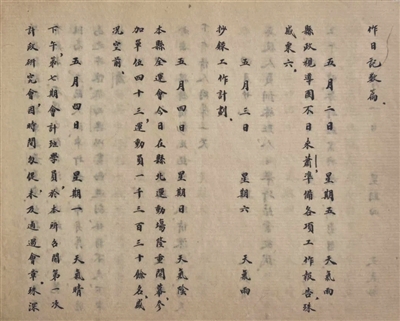 昨日記數篇
五月二日　星期五　天氣雨
縣政視導團不日來蕭準備各項工作報告殊
感束六
五月三日　星期六　天氣雨
抄錄工作計劃
五月四日　星期日　天氣陰
本縣全運會今日在縣北運動場隆重開幕參
加單位四十三運動員一千三百三十餘名盛
況空前
五月四日　星期一　天氣晴
下午第七期會計班學員於本所召開第一次
計政研究會因時間匆促未及通過會章殊深